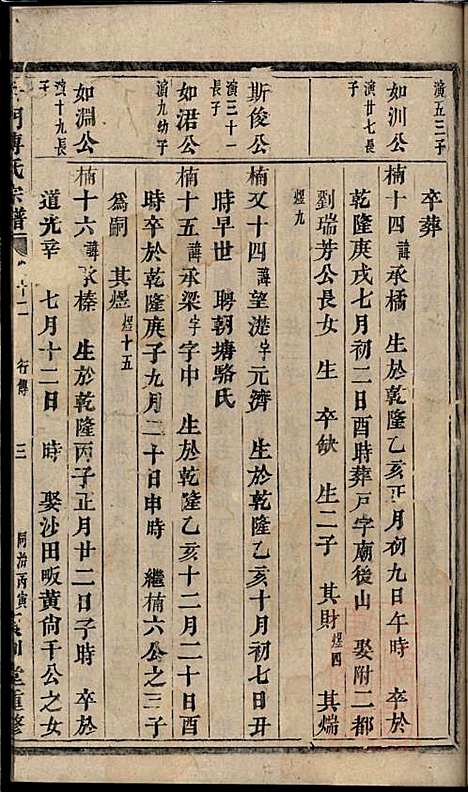 演五三子
卒葬
如汌公
演廿七長子
楠十四諱承橘 生於乾隆乙亥正月初九日午時 卒於
乾隆庚戌七月初二日酉時葬戸字廟後山 娶附二都
劉瑞芳公長女 生 卒缺 生二子 其財煜四 其煓
煜九
斯俊公
演三十一長子
楠又十四諱望濋字元濟 生於乾隆乙亥十月初七日丑
時早世 聘朝塘駱氏
如涒公
演九幼子
楠十五諱承梁字字中 生於乾隆乙亥十二月二十日酉
時卒於乾隆庚子九月二十日申時 繼楠六公之三子
為嗣 其煜煜十五
如淵公
演十九長子
楠十六諱承榛 生於乾隆丙子正月廿二日子時 卒於
道光辛 七月十二日 時 娶沙田畈黃尙千公之女
傅氏宗譜 行傳 三 同治丙寅 堂重修